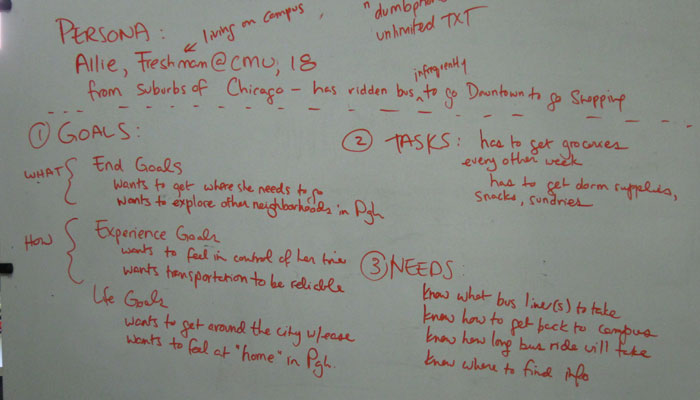 living on campus,
" dumbphone
unlimited TXT
PERSONA:
Allie, Freshman@CMU, 18
from suburbs of Chicago – has ridden bus infrequently to go Downtown to go Shopping
① GOALS:
WHAT
End Goals
wants to get where she needs to go
wants to explore other neighborhoods in Pgh
HOW
Experience Goals
wants to feel in control of her time
wants transportation to be reliable
Life Goals
wants to get around the city w/ease
wants to feel at "home" in Pgh.
② TASKS: has to get groceries
every other week
has to get dorm supplies,
snacks, sundries
③ NEEDS:
know what bus line(s) to take
know how to get back to campus
know how long bus ride will take
know where to find info